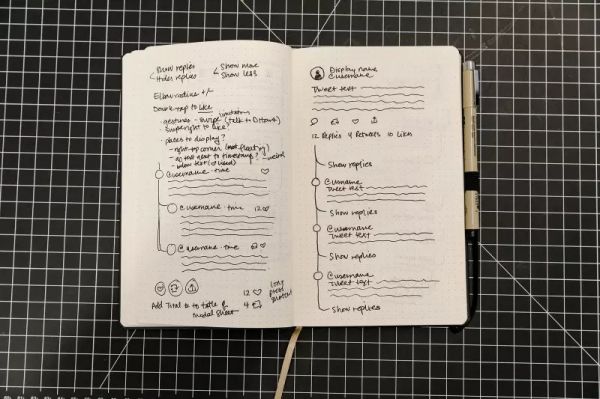 Show replies
Hides replies
Show more
Show less
Elbow radius +/-
Double-tap to like
limitations
- gestures - swipe (talk to Dtoank)
swipe right to like?
- places to display?
- right-top corner (not floating)
- next to timestamp? - weird
- below text (if used)
@username · time
@username · time 12
@username · time
12
4
long press
Add Total to table of
modal sheet
Display name
@username
Tweet text
12 Replies 4 Retweets 10 Likes
Show replies
@username
Tweet text
Show replies
@username
Tweet text
Show replies
@username
Tweet text
Show replies